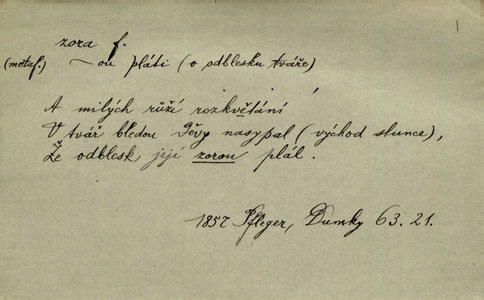 1
zora f.
(metaf.) ~ou pláti (o odblesku tváře)
A milých růží rozkvětání
V tvář bledou Děvy nasypal (východ slunce),
Že odblesk její zorou plál.
1857 Pfleger, Dumky 63. 21.